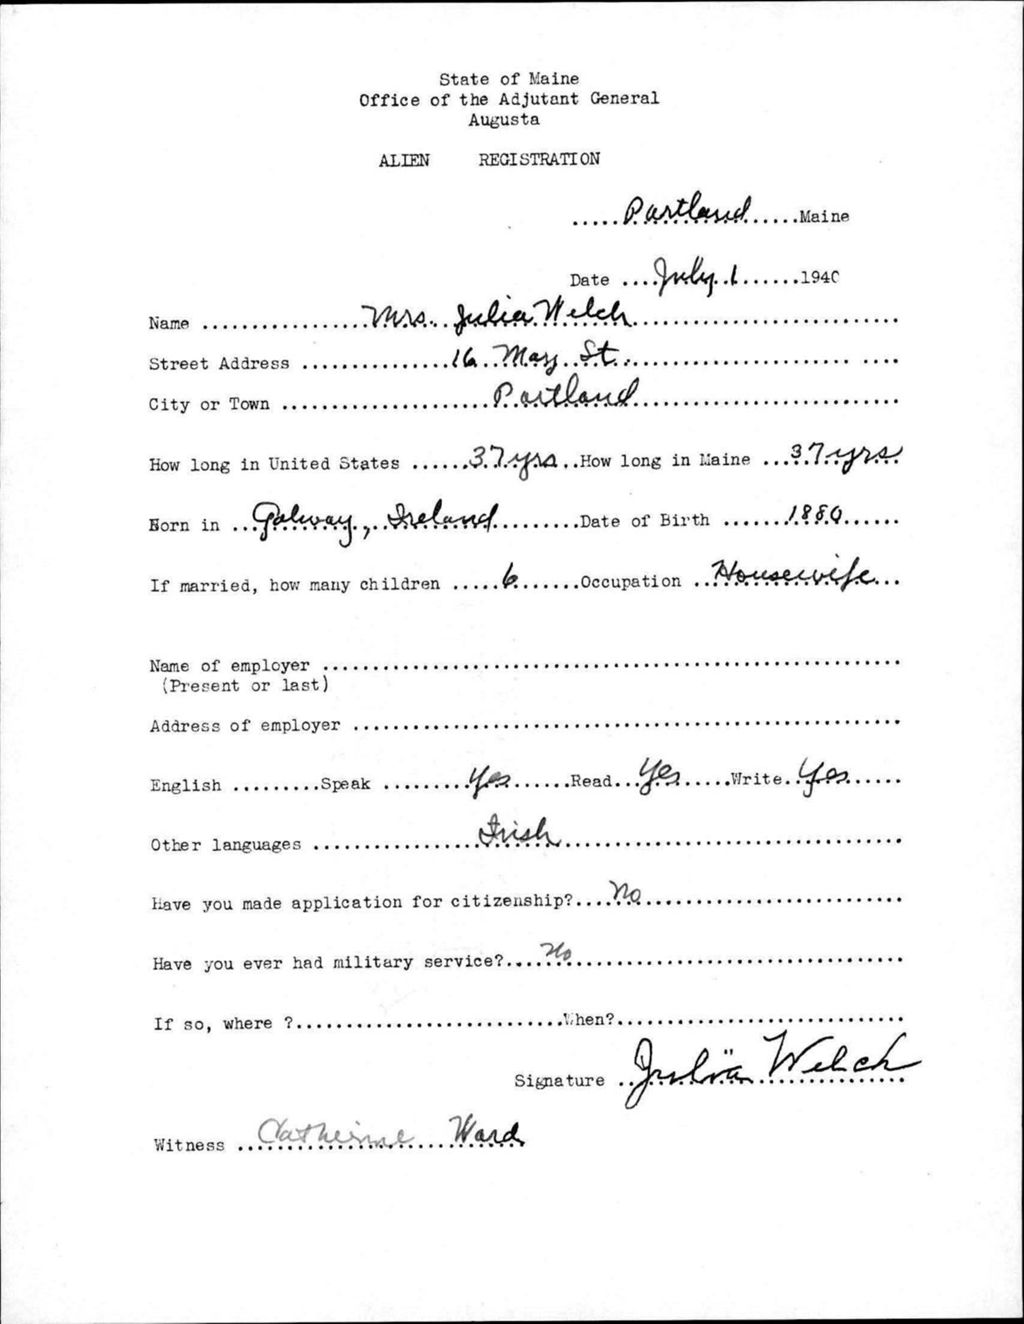 State of Maine
Office of the Adjutant General
Augusta
ALIEN REGISTRATION
.....Portland......Maine
Date ....July 1.......1940
Name .................Mrs. Julia Welch................................
Street Address ................16 May St............................... ....
City or Town .....................Portland................................
How long in United States ......37 yrs..How long in Maine ...37 yrs
Born in ..Galway, Ireland..........Date of Birth .......1880......
If married, how many children .....6.......Occupation ..Housewife...
Name of employer ..........................................................
(Present or last)
Address of employer .......................................................
English .........Speak .........Yes.......Read...Yes.....Write..Yes......
Other languages .................Irish...................................
Have you made application for citizenship?....No..........................
Have you ever had military service?....No.................................
If so, where ?...........................When?.............................
Signature ..Julia Welch
Witness ..Catherine Ward